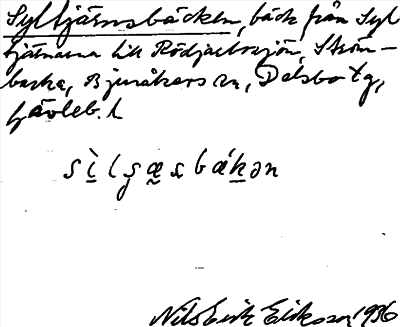 Syltjärnsbäcken, bäck från Syl
tjärnarna till Rödjaelvsjön, Ström-
backa, Bjuråkers sn, Delsbo tg,
Gävleb. l
sìlʂæsbákən
Nils Erik Eriksson 1936